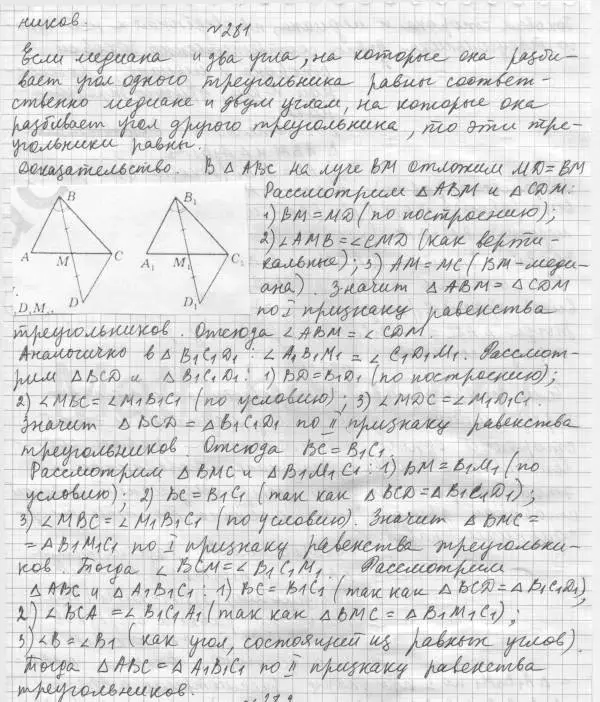 ников.
№281
Если медиана и два угла, на которые она разби-
вает угол одного треугольника равны соответ-
ственно медиане и двум углам, на которые она
разбивает угол другого треугольника, то эти тре-
угольники равны.
Доказательство. В △ABC на луче BM отложим MD=BM
Рассмотрим △ABM и △CDM:
1) BM=MD (по построению);
2) ∠AMB=∠CMD (как верти-
кальные); 3) AM=MC (BM-меди-
ана). Значит △ABM=△CDM
по I признаку равенства
B
A
M
C
D
B₁
A₁
M₁
C₁
D₁
D₁M₁.
треугольников. Отсюда ∠ABM=∠CDM
Аналогично в △B₁C₁D₁: ∠A₁B₁M₁=∠C₁D₁M₁. Рассмот-
рим △BCD и △B₁C₁D₁: 1) BD=B₁D₁ (по построению);
2) ∠MBC=∠M₁B₁C₁ (по условию); 3) ∠MDC=∠M₁D₁C₁.
Значит △BCD=△B₁C₁D₁ по II признаку равенства
треугольников. Отсюда BC=B₁C₁.
Рассмотрим △BMC и △B₁M₁C₁: 1) BM=B₁M₁ (по
условию); 2) BC=B₁C₁ (так как △BCD=△B₁C₁D₁);
3) ∠MBC=∠M₁B₁C₁ (по условию). Значит △BMC=
=△B₁M₁C₁ по I признаку равенства треугольни-
ков. Тогда ∠BCM=∠B₁C₁M₁. Рассмотрим
△ABC и △A₁B₁C₁: 1) BC=B₁C₁ (так как △BCD=△B₁C₁D₁);
2) ∠BCA=∠B₁C₁A₁ (так как △BMC=△B₁M₁C₁);
3) ∠B=∠B₁ (как угол, состоящей из равных углов).
Тогда △ABC=△A₁B₁C₁ по II признаку равенства
треугольников.